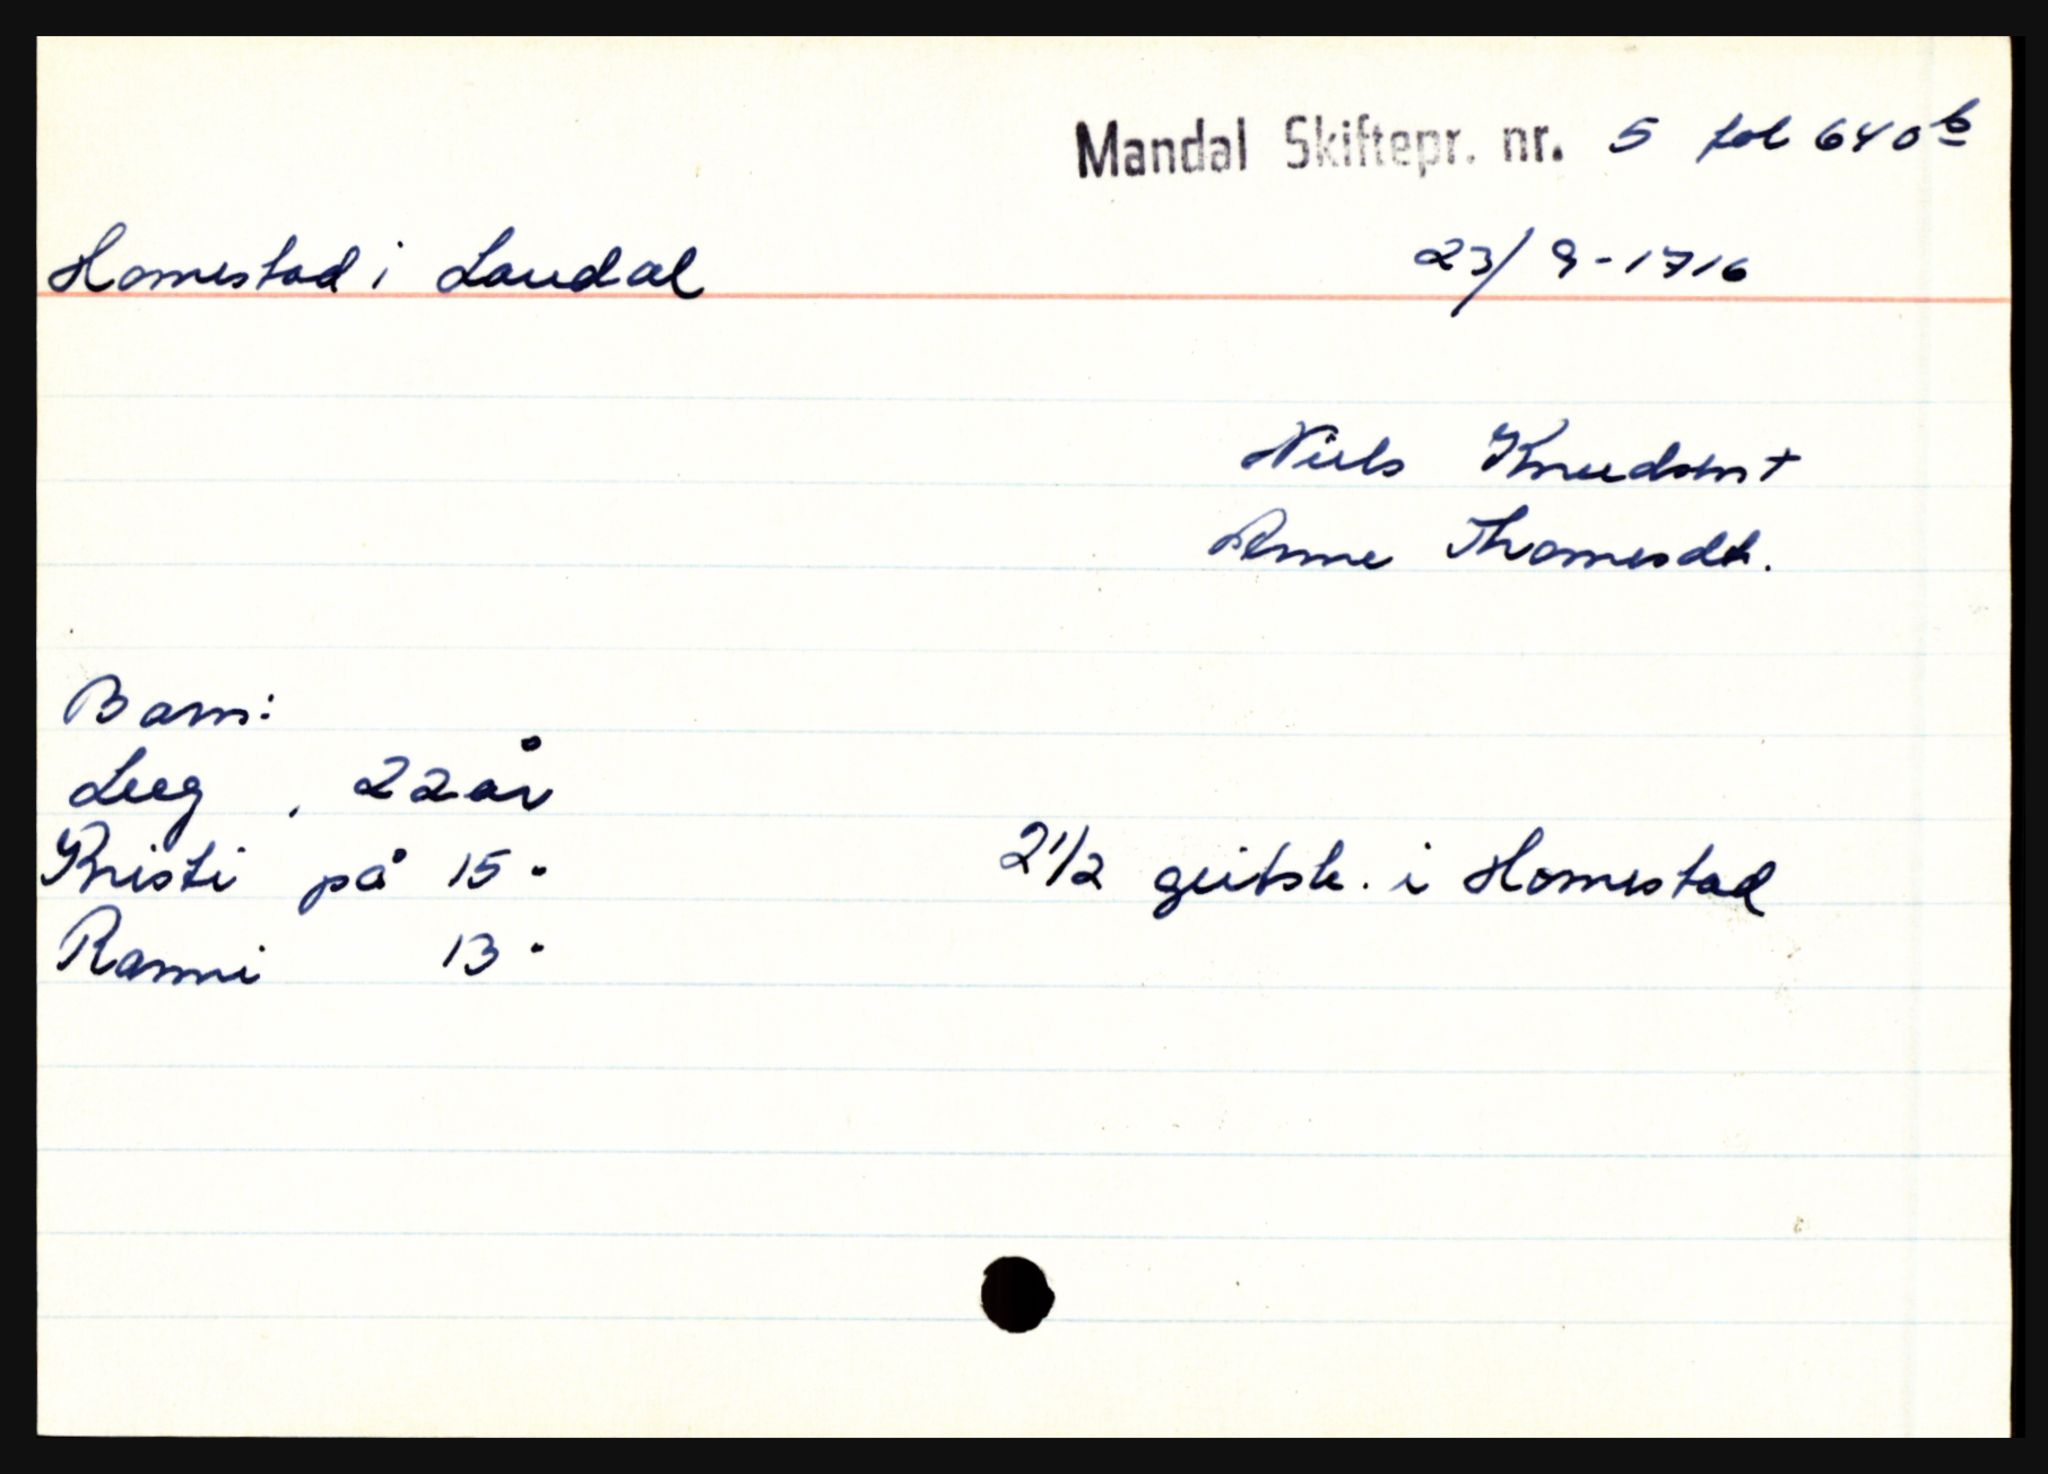 Mandal Skiftepr. nr. 5 fol 640 b
Homestad i Laudal 23/9-1716
Niels Knudsen +
Anne Thomesdt.
Barn:
Leeg , 22 år
Kristi på 15 "
2 1/2 geitsk. i Homestad
Ranni 13 "